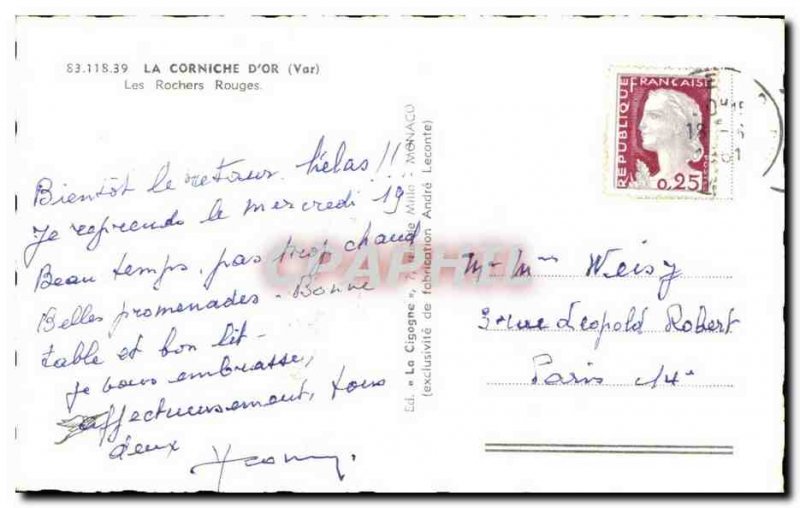 83.118.39 LA CORNICHE D'OR (Var)
Les Rochers Rouges.
Bientôt le retour hélas !!
Je reprends le mercredi 19
Beau temps, pas trop chaud
Belles promenades - Bonne
table et bon lit -
Je vous embrasse,
affectueusement, tous
deux
Ed. « La Cigogne », 7, de Millo - MONACO
(exclusivité de fabrication André Leconte)
REPUBLIQUE FRANÇAISE
POSTES
0,25
Mr Mme Weisz
3 rue Léopold Robert
Paris 14e
CPAPHIL